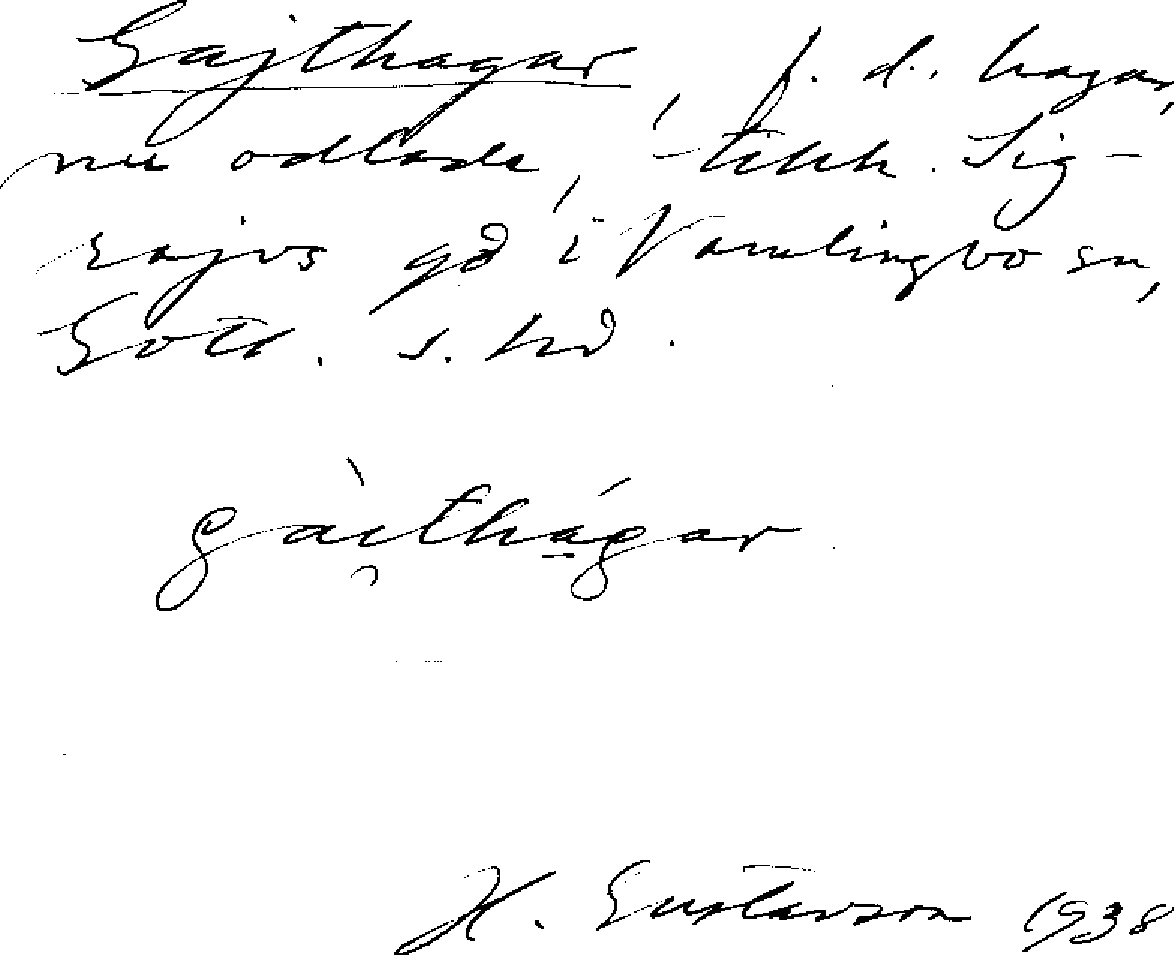 Gajthagar, f. d. hagar,
nu odlade, tillh. Sig-
rajvs gd i Vamlingbo sn,
Gotl. s. hd.
gài̯thágar
H. Gustavson 1938